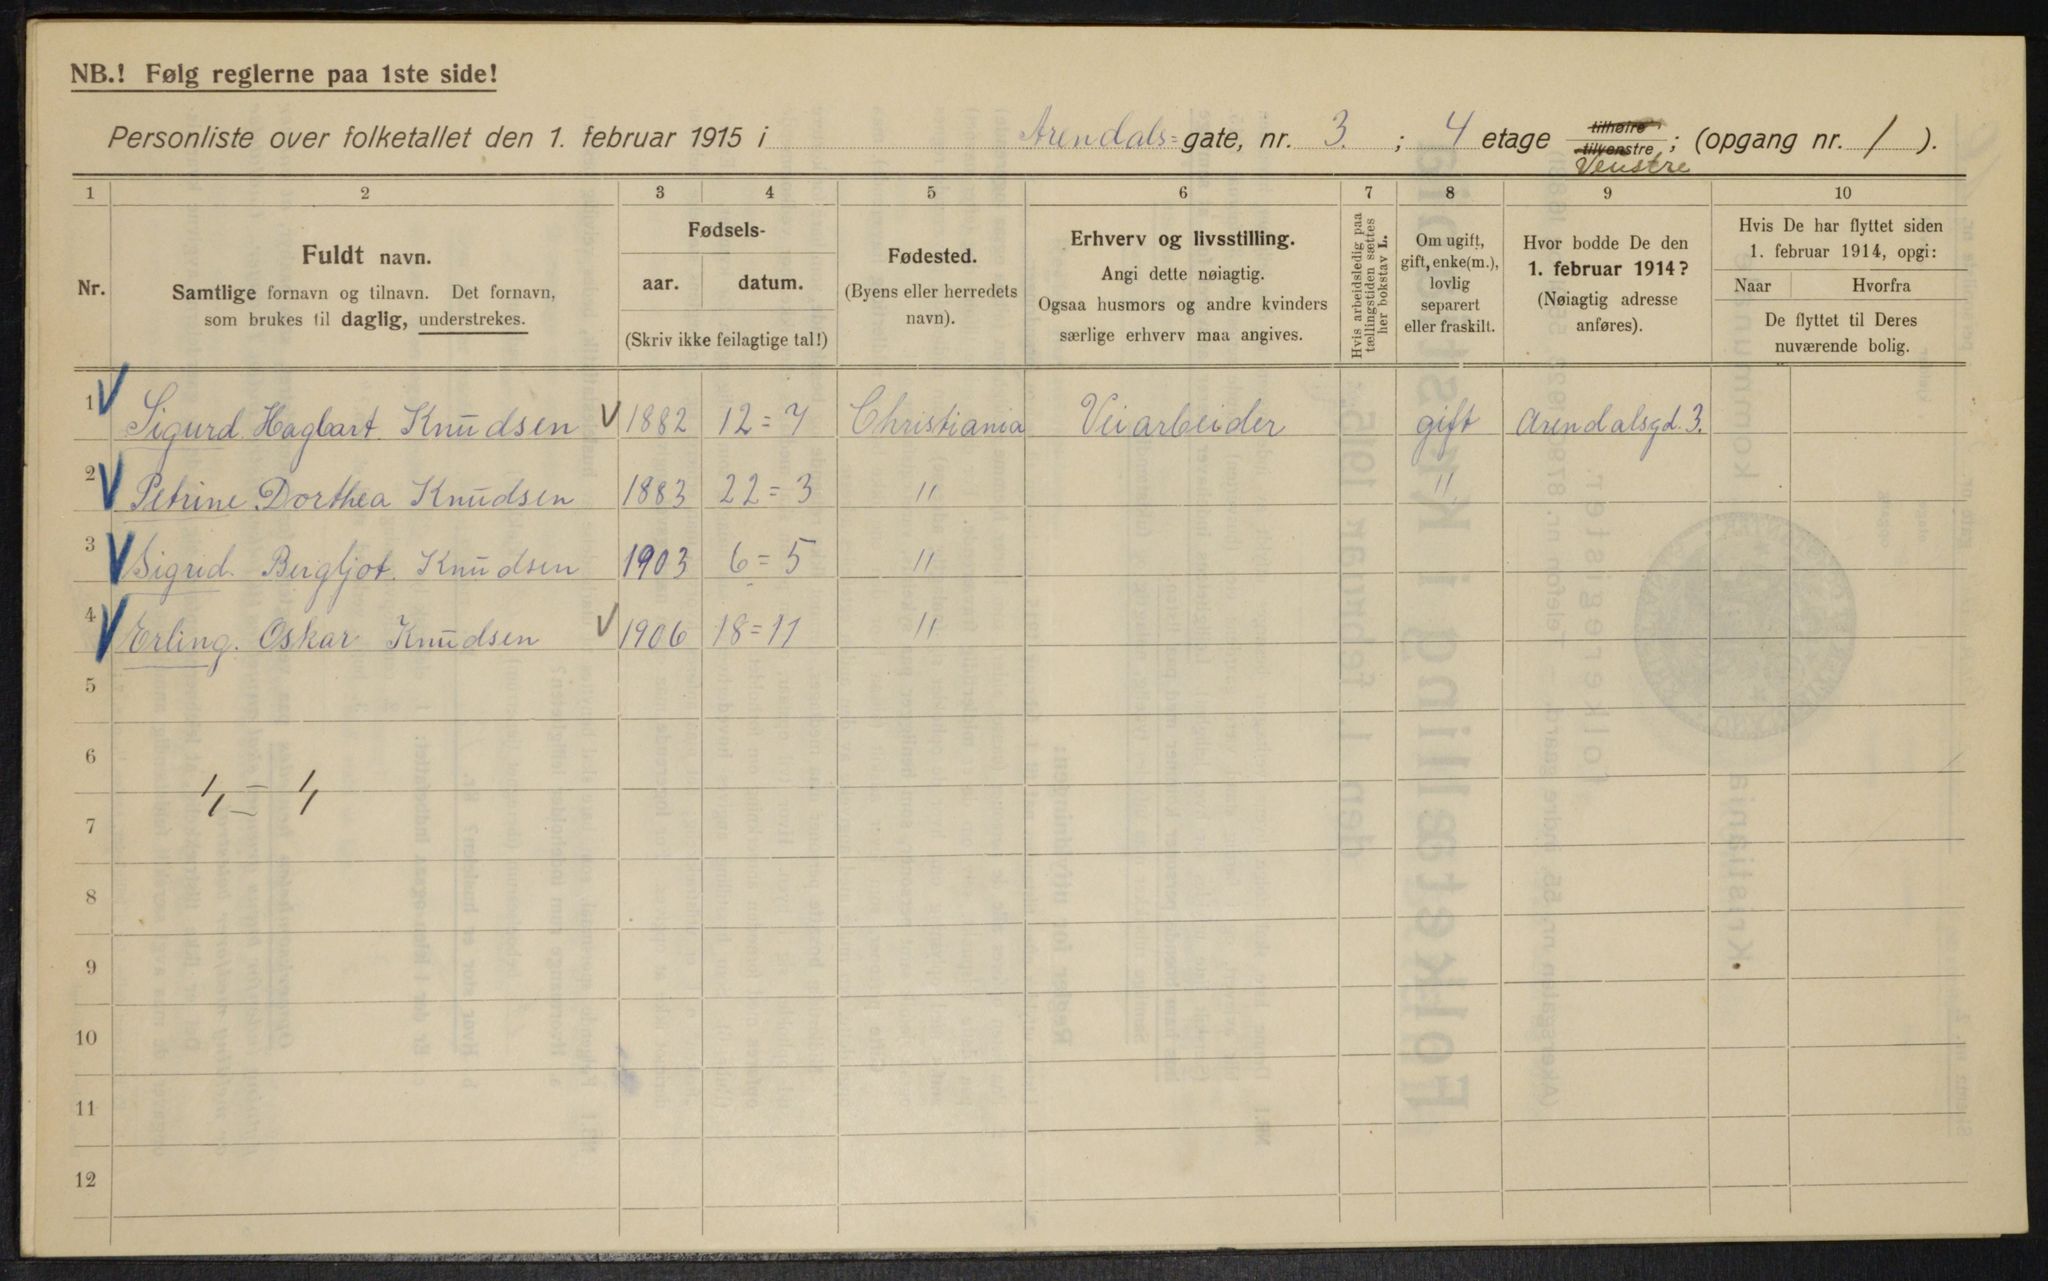 NB.! Følg reglerne paa 1ste side!
Personliste over folketallet den 1. februar 1915 i Arendals=gate, nr. 3. ; 4 etage tilhøire tilvenstre Venstre ; (opgang nr. 1 ).
1 2 3 4 5 6 7 8 9 10
Nr.
Fuldt navn.
Samtlige fornavn og tilnavn. Det fornavn,
som brukes til daglig, understrekes.
Fødsels-
aar. datum.
(Skriv ikke feilagtige tal!)
Fødested.
(Byens eller herredets
navn).
Erhverv og livsstilling.
Angi dette nøiagtig.
Ogsaa husmors og andre kvinders
særlige erhverv maa angives.
Hvis arbeidsledig paa
tællingstiden sættes
her bokstav L.
Om ugift,
gift, enke(m.),
lovlig
separert
eller fraskilt.
Hvor bodde De den
1. februar 1914?
(Nøiagtig adresse
anføres).
Hvis De har flyttet siden
1. februar 1914, opgi:
Naar Hvorfra
De flyttet til Deres
nuværende bolig.
1 Sigurd. Hagbart. Knudsen 1882 12=7 Christiania Veiarbeider gift Arendalsgd. 3.
2 Petrine. Dorthea Knudsen 1883 22=3 " "
3 Sigrid. Bergljot. Knudsen 1903 6=5 "
4 Erling. Oskar Knudsen 1906 18=11 "
5
6
7
8
9
10
11
12